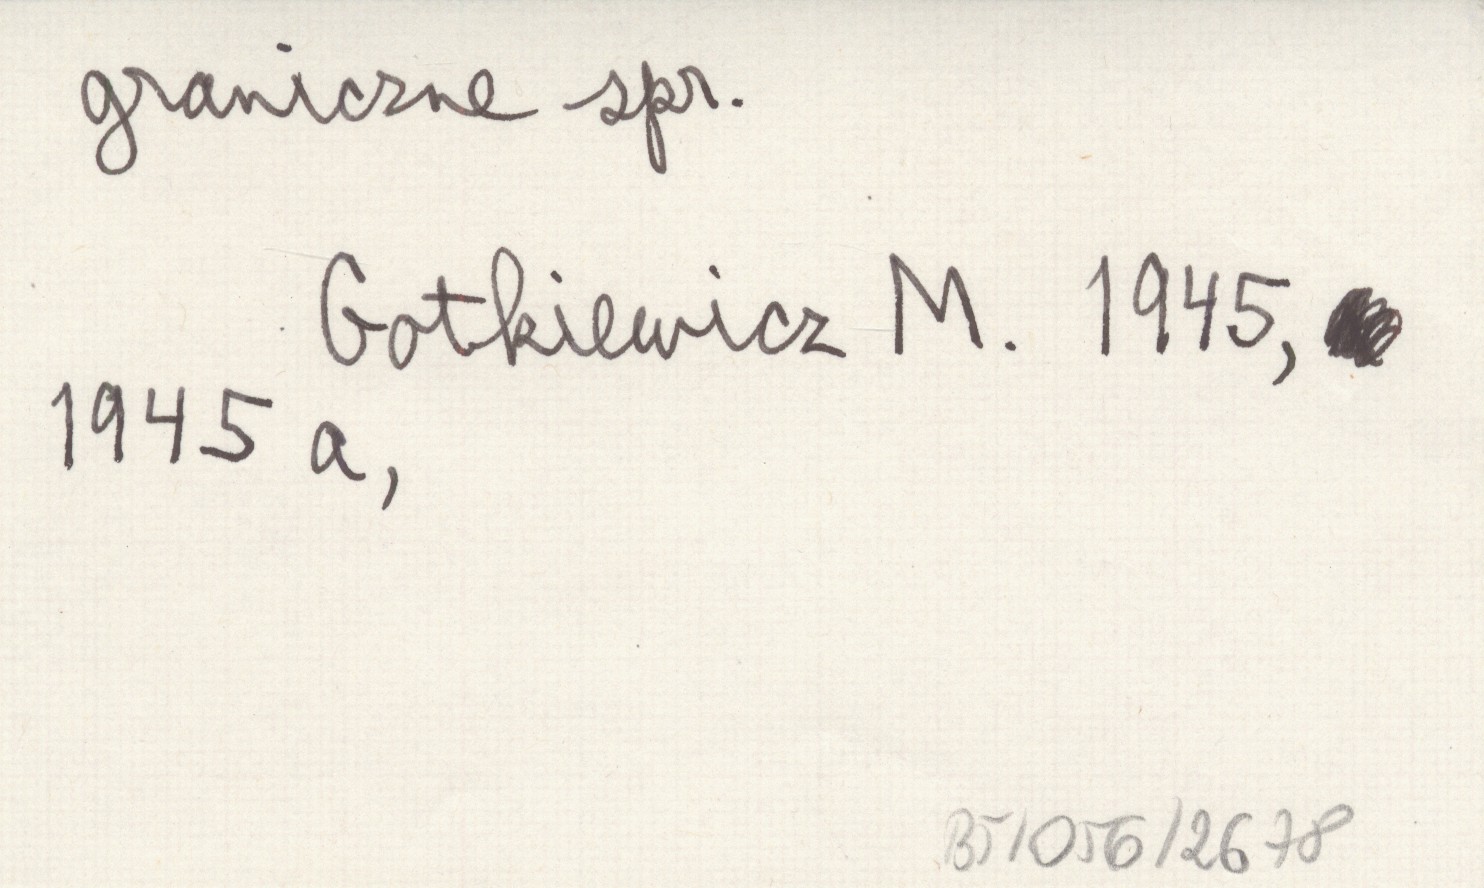 graniczne spr.
Gotkiewicz M. 1945,
1945 a,
BJ/056/2678